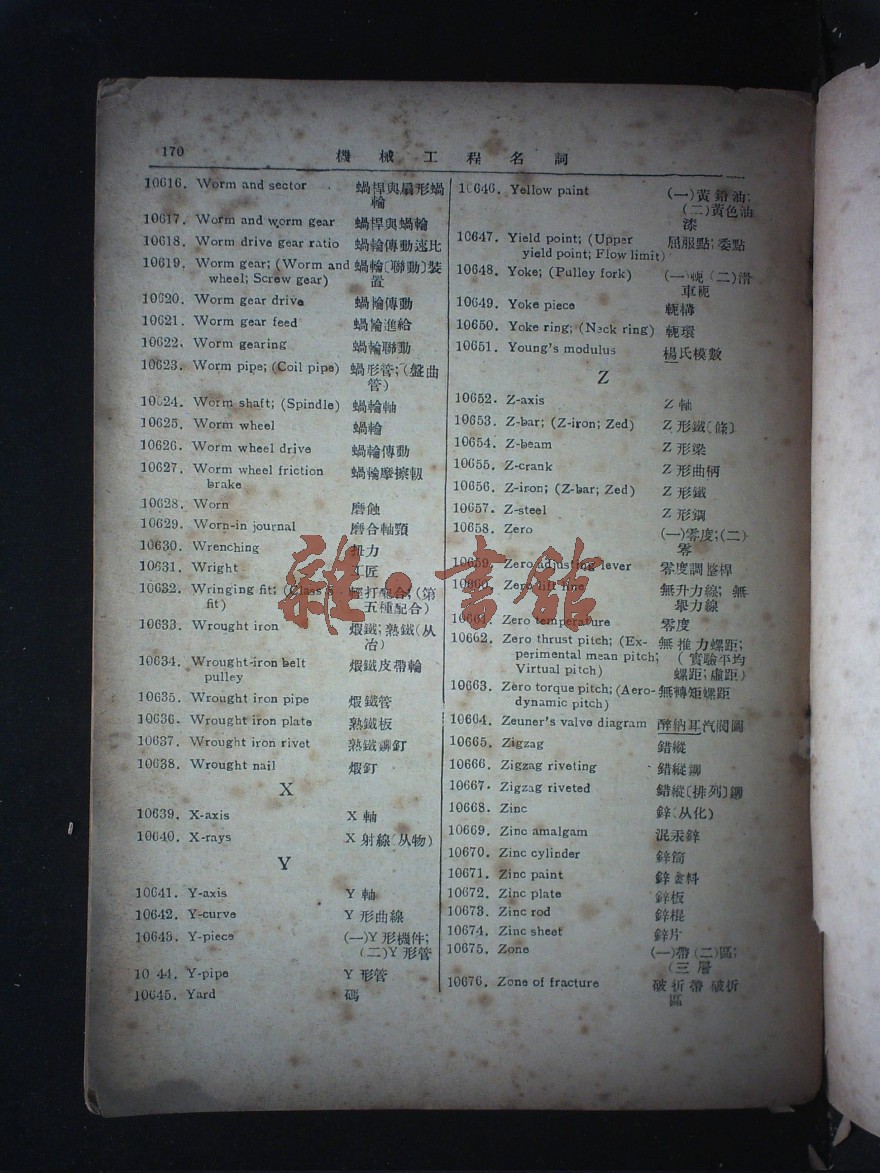 170
機械工程名詞
10616. Worm and sector 蝸桿與扇形蝸
輪
10617. Worm and worm gear 蝸桿與蝸輪
10618. Worm drive gear ratio 蝸輪傳動速比
10619. Worm gear; (Worm and 蝸輪〔聯動〕裝
wheel; Screw gear) 置
10620. Worm gear drive 蝸輪傳動
10621. Worm gear feed 蝸輪進給
10622. Worm gearing 蝸輪聯動
10623. Worm pipe; (Coil pipe) 蝸形管;(盤曲
管)
10624. Worm shaft; (Spindle) 蝸輪軸
10625. Worm wheel 蝸輪
10626. Worm wheel drive 蝸輪傳動
10627. Worm wheel friction 蝸輪摩擦軔
brake
10628. Worn 磨蝕
10629. Worn-in journal 磨合軸頸
10630. Wrenching 扭力
10631. Wright 工匠
10632. Wringing fit; (Class 5 輕打配合;(第
fit) 五種配合)
10633. Wrought iron 煅鐵;熟鐵(从
冶)
10634. Wrought-iron belt 煅鐵皮帶輪
pulley
10635. Wrought iron pipe 煅鐵管
10636. Wrought iron plate 熟鐵板
10637. Wrought iron rivet 熟鐵鉚釘
10638. Wrought nail 煅釘
X
10639. X-axis X 軸
10640. X-rays X 射線〔从物〕
Y
10641. Y-axis Y 軸
10642. Y-curve Y 形曲線
10643. Y-piece (一)Y 形機件;
(二)Y 形管
10 44. Y-pipe Y 形管
10645. Yard 碼
10646. Yellow paint (一)黃鉛油;
(二)黃色油
漆
10647. Yield point; (Upper 屈服點;委點
yield point; Flow limit)
10648. Yoke; (Pulley fork) (一)軛(二)滑
車軛
10649. Yoke piece 軛構
10650. Yoke ring; (Neck ring) 軛環
10651. Young's modulus 楊氏模數
Z
10652. Z-axis Z 軸
10653. Z-bar; (Z-iron; Zed) Z 形鐵〔條〕
10654. Z-beam Z 形梁
10655. Z-crank Z 形曲柄
10656. Z-iron; (Z-bar; Zed) Z 形鐵
10657. Z-steel Z 形鋼
10658. Zero (一)零度;(二)
零
10659. Zero adjusting lever 零度調整桿
10660. Zero lift line 無升力線; 無
舉力線
10661. Zero temperature 零度
10662. Zero thrust pitch; (Ex- 無推力螺距;
perimental mean pitch; (實驗平均
Virtual pitch) 螺距;虛距)
10663. Zero torque pitch; (Aero- 無轉矩螺距
dynamic pitch)
10664. Zeuner's valve diagram 醉納耳汽閥圖
10665. Zigzag 錯縱
10666. Zigzag riveting 錯縱鉚
10667. Zigzag riveted 錯縱〔排列〕鉚
10668. Zinc 鋅〔从化〕
10669. Zinc amalgam 混汞鋅
10670. Zinc cylinder 鋅筒
10671. Zinc paint 鋅 料
10672. Zinc plate 鋅板
10673. Zinc rod 鋅棍
10674. Zinc sheet 鋅片
10675. Zone (一)帶(二)區;
(三 層
10676. Zone of fracture 破折帶 破折
區
雜·書館